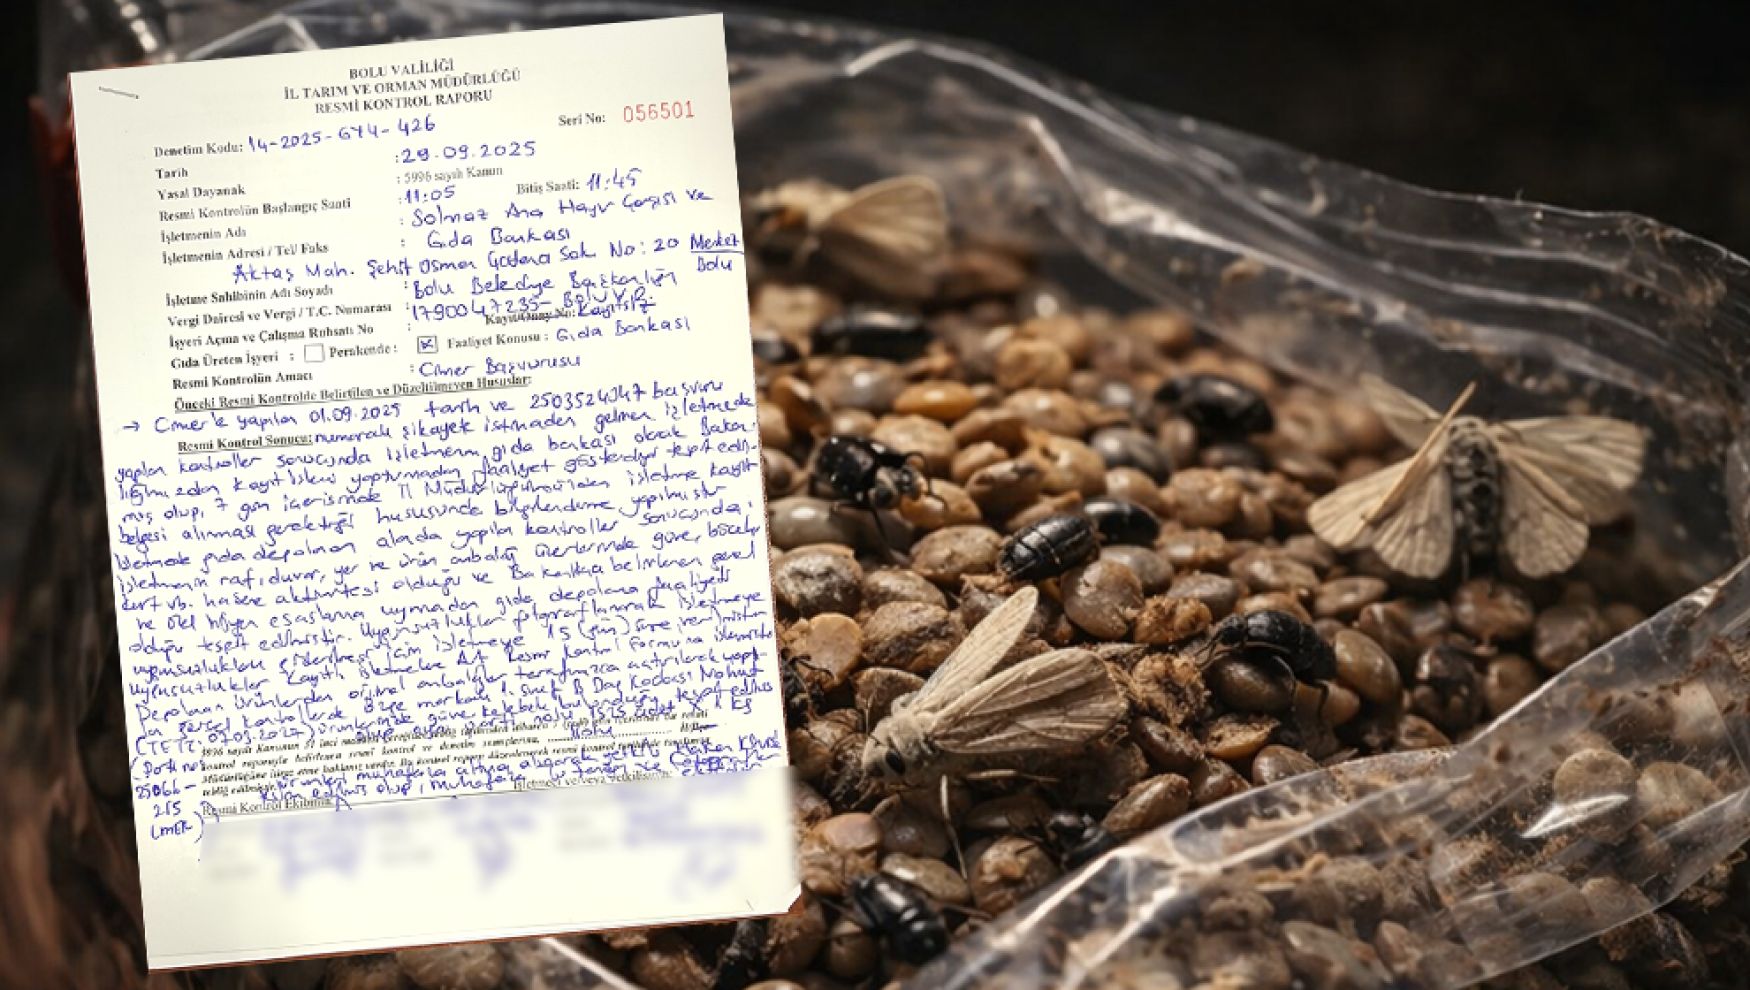 BOLU VALİLİĞİ
İL TARIM VE ORMAN MÜDÜRLÜĞÜ
RESMİ KONTROL RAPORU
Seri No: 056501
Denetim Kodu: 14-2025-GY4-426
Tarih :29.09.2025
Yasal Dayanak : 5996 sayılı Kanun
Resmi Kontrolün Başlangıç Saati :11:05 Bitiş Saati: 11:45
İşletmenin Adı : Solmaz Ana Hayır Çarşısı ve
İşletmenin Adresi / Tel/ Faks : Gıda Bankası
Aktaş Mah. Şehit Osman Sok No: 20 Merkez
İşletme Sahibinin Adı Soyadı : Bolu Belediye Başkanlığı Bolu
Vergi Dairesi ve Vergi / T.C. Numarası :1790047235- Bolu V.D.
İşyeri Açma ve Çalışma Ruhsatı No : Kayıt/Onay No: Kayıtsız
Gıda Üreten İşyeri : Perakende : Faaliyet Konusu : Gıda Bankası
Resmi Kontrolün Amacı : Cimer Başvurusu
Önceki Resmi Kontrolde Belirtilen ve Düzeltilmeyen Hususlar:
→ Cimer'e yapılan 01.09.2025 tarih ve 2503524347 başvuru
Resmi Kontrol Sonucu: numaralı şikayete istinaden gelinen işletmede
yapılan kontroller sonucunda işletmenin gıda bankası olarak Bakan-
lığımızdan kayıt işlemi yaptırmadan faaliyet gösterdiği tespit edil-
miş olup, 7 gün içerisinde İl Müdürlüğümüzden işletme kayıt
belgesi alınması gerektiği hususunda bilgilendirme yapılmıştır
İşletmede gıda depolanan alanda yapılan kontroller sonucunda;
işletmenin raf, duvar, yer ve ürün ambalajı üzerlerinde güve, böcek,
kurt vb. haşere aktivitesi olduğu ve Bakanlıkça belirlenen genel
ve özel hijyen esaslarına uymadan gıda depolama faaliyeti
olduğu tespit edilmiştir. Uygunsuzluklar fotoğraflanarak işletmeye
uygunsuzlukların giderilmesi için işletmeye 15 (gün) süre verilmiştir
Uygunsuzluklar Kayıtlı İşletmelere Ait Resmi Kontrol Formuna işlenmiştir
Depolanan ürünlerden orijinal ambalajlar tarafımızca açtırılarak yapı-
lan kontrollerde markalı 1. sınıf Koçbaşı Nohut
(TETT: ürünlerinde güve kelebek bulunduğu tespit edilmiş
(Parti no olup aynı parti nolu 1 kg
25066- ürünleri muhafaza altına alınarak yetkili Hakan
215
Resmi Kontrol Ekibinin